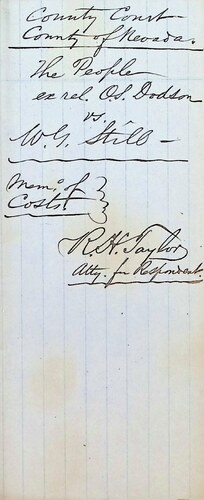 County Court
County of Nevada.
The People
ex rel. O.S. Dodson
vs.
W.G. Still
Memo. of
Costs.
R.H. Taylor
Atty. for Respondent.